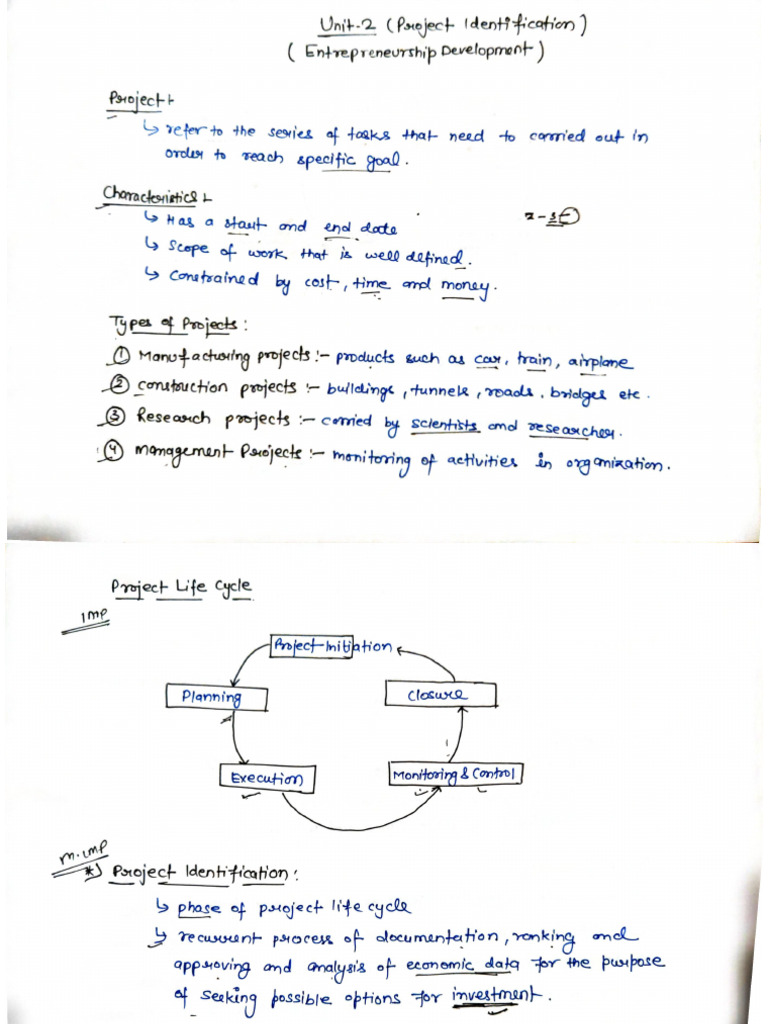 Unit-2 (Project Identification)
(Entrepreneurship Development)
Project:-
↳ refer to the series of tasks that need to carried out in
order to reach specific goal.
Characteristics:-
↳ Has a start and end date
↳ Scope of work that is well defined.
↳ Constrained by cost, time and money.
Types of Projects:
① Manufacturing projects:- products such as car, train, airplane
② Construction projects:- buildings, tunnels, roads, bridges etc.
③ Research projects:- carried by scientists and researcher.
④ Management Projects:- monitoring of activities in organization.
Project Life Cycle
Imp
Project Initiation
Planning
Closure
Execution
Monitoring & Control
M.imp
*) Project Identification:
↳ phase of project life cycle
↳ recurrent process of documentation, ranking and
approving and analysis of economic data for the purpose
of seeking possible options for investment.